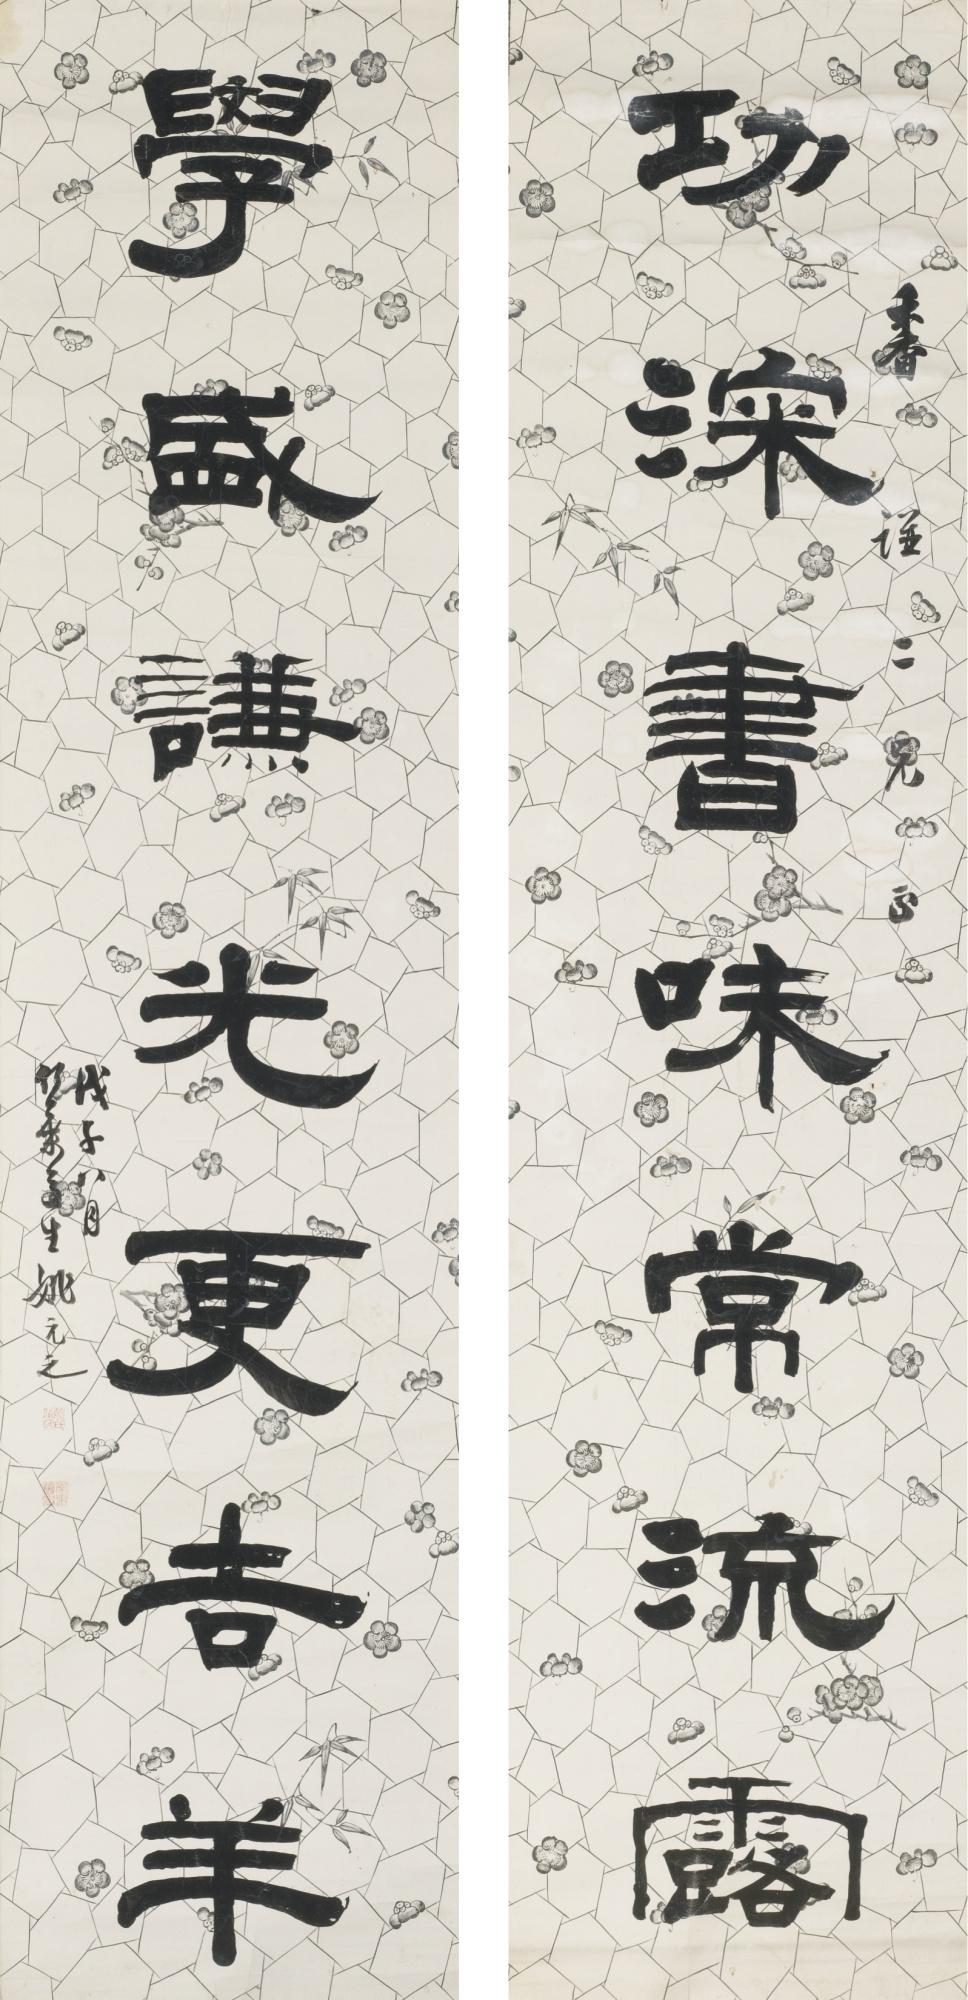 功深書味常流露
謙二兄正
學盛謙光更吉羊
戊子八月
姚元之